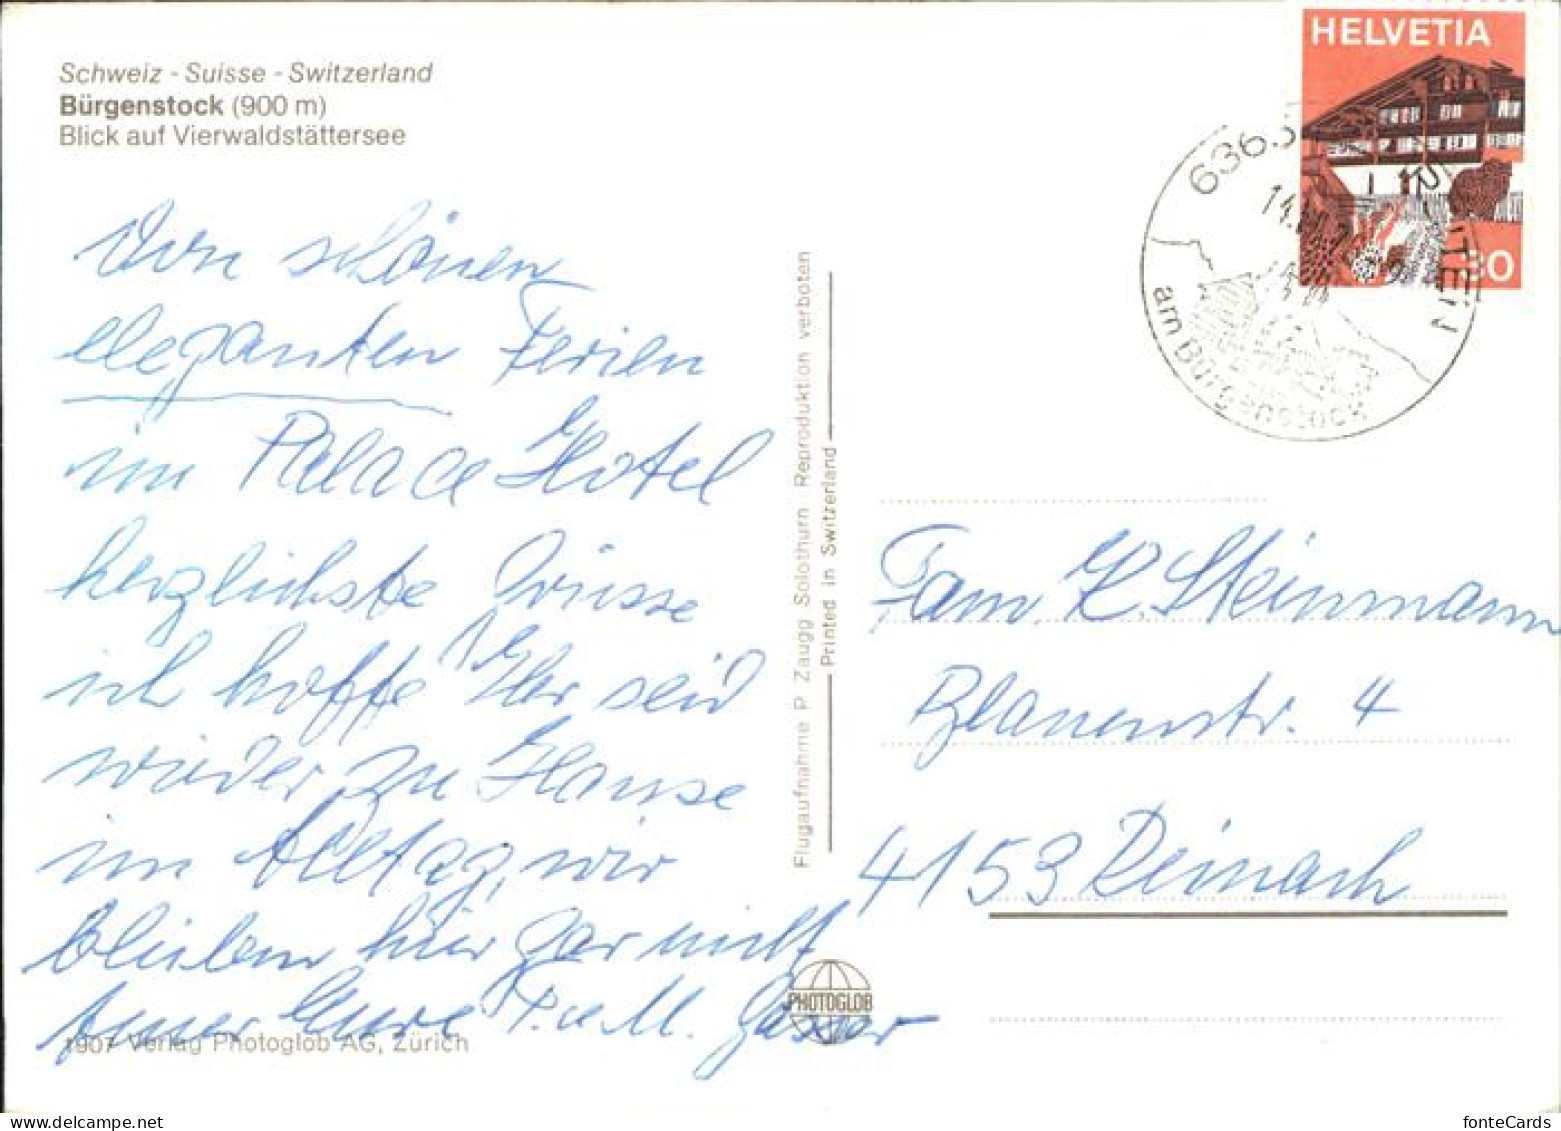 Schweiz - Suisse - Switzerland
Bürgenstock (900 m)
Blick auf Vierwaldstättersee
Von schönen
eleganten Ferien
im Palace Hotel
herzlichste Grüsse
ich hoffe Ihr seid
wieder zu Hause
im Alltag, wir
bleiben hier gar nicht
immer Eure P. u. M. Gasser
1907 Verlag Photoglob AG, Zürich
Flugaufnahme P. Zaugg Solothurn Reproduktion verboten
Printed in Switzerland
PHOTOGLOB
HELVETIA
30
6363
14.
am Bürgenstock
Fam. K. Steinmann
Blauenstr. 4
4153 Reinach
www.fontainecards.com
fonteCards